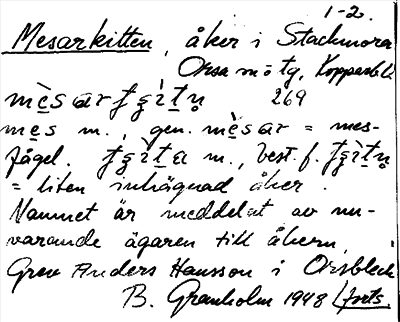 1-2.
Mesarkitten, åker i Stackmora
Orsa m o tg, Kopparb.l.
269
mes m., gen. mèsar = mes-
fågel. best. f.
= liten inhägnad åker.
Namnet är meddelat av nu-
varande ägaren till åkern,
Grav Anders Hansson i Orsbleck
B. Granholm 1948 (forts.